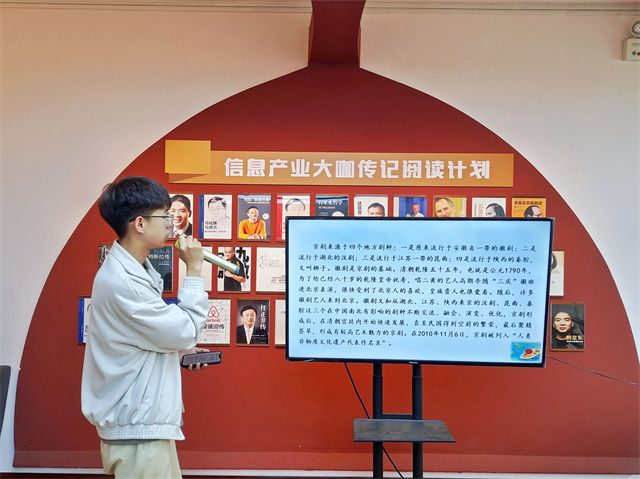 信息产业大咖传记阅读计划
京剧来源于四个地方剧种:一是原来流行于安徽省一带的徽剧;二是
流行于湖北的汉剧;三是流行于江苏一带的昆曲;四是流行于陕西的秦腔,
又叫梆子。徽剧是京剧的基础。清朝乾隆五十五年,也就是公元1790年,
为了给已经八十岁的乾隆皇帝祝寿,唱二黄的艺人高朗亭随“三庆”徽班
进北京来演,很快受到了北京人的喜欢,皇族贵人也很爱看。随后,许多
徽剧艺人来到北京。徽剧又和从湖北、江苏、陕西来京的汉剧、昆曲、秦
腔这三个在中国南北有影响的剧种不断交流、融会、演变、优化,京剧形
成后,在清朝宫廷内开始快速发展,直至民国得到空前的繁荣。最后聚精
荟萃,形成有极高艺术魅力的京剧。在2010年11月6日,京剧被列入“人类
非物质文化遗产代表作名录”。
任正非传